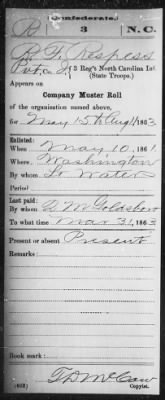 (Confederate.)
R 3 N.C.
R. F. Respess
Pvt, Co. I, 3 Reg't North Carolina Inf.
(State Troops.)
Appears on
Company Muster Roll
of the organization named above,
for May 1 5 to Aug 1, 1863
Enlisted:
When May 10, 1861
Where Washington
By whom Lt Waters
Period
Last paid:
By whom D M Goldsboro
To what time Mar 31, 1863
Present or absent Present
Remarks:
Book mark:
T D McCaw
Copyist.